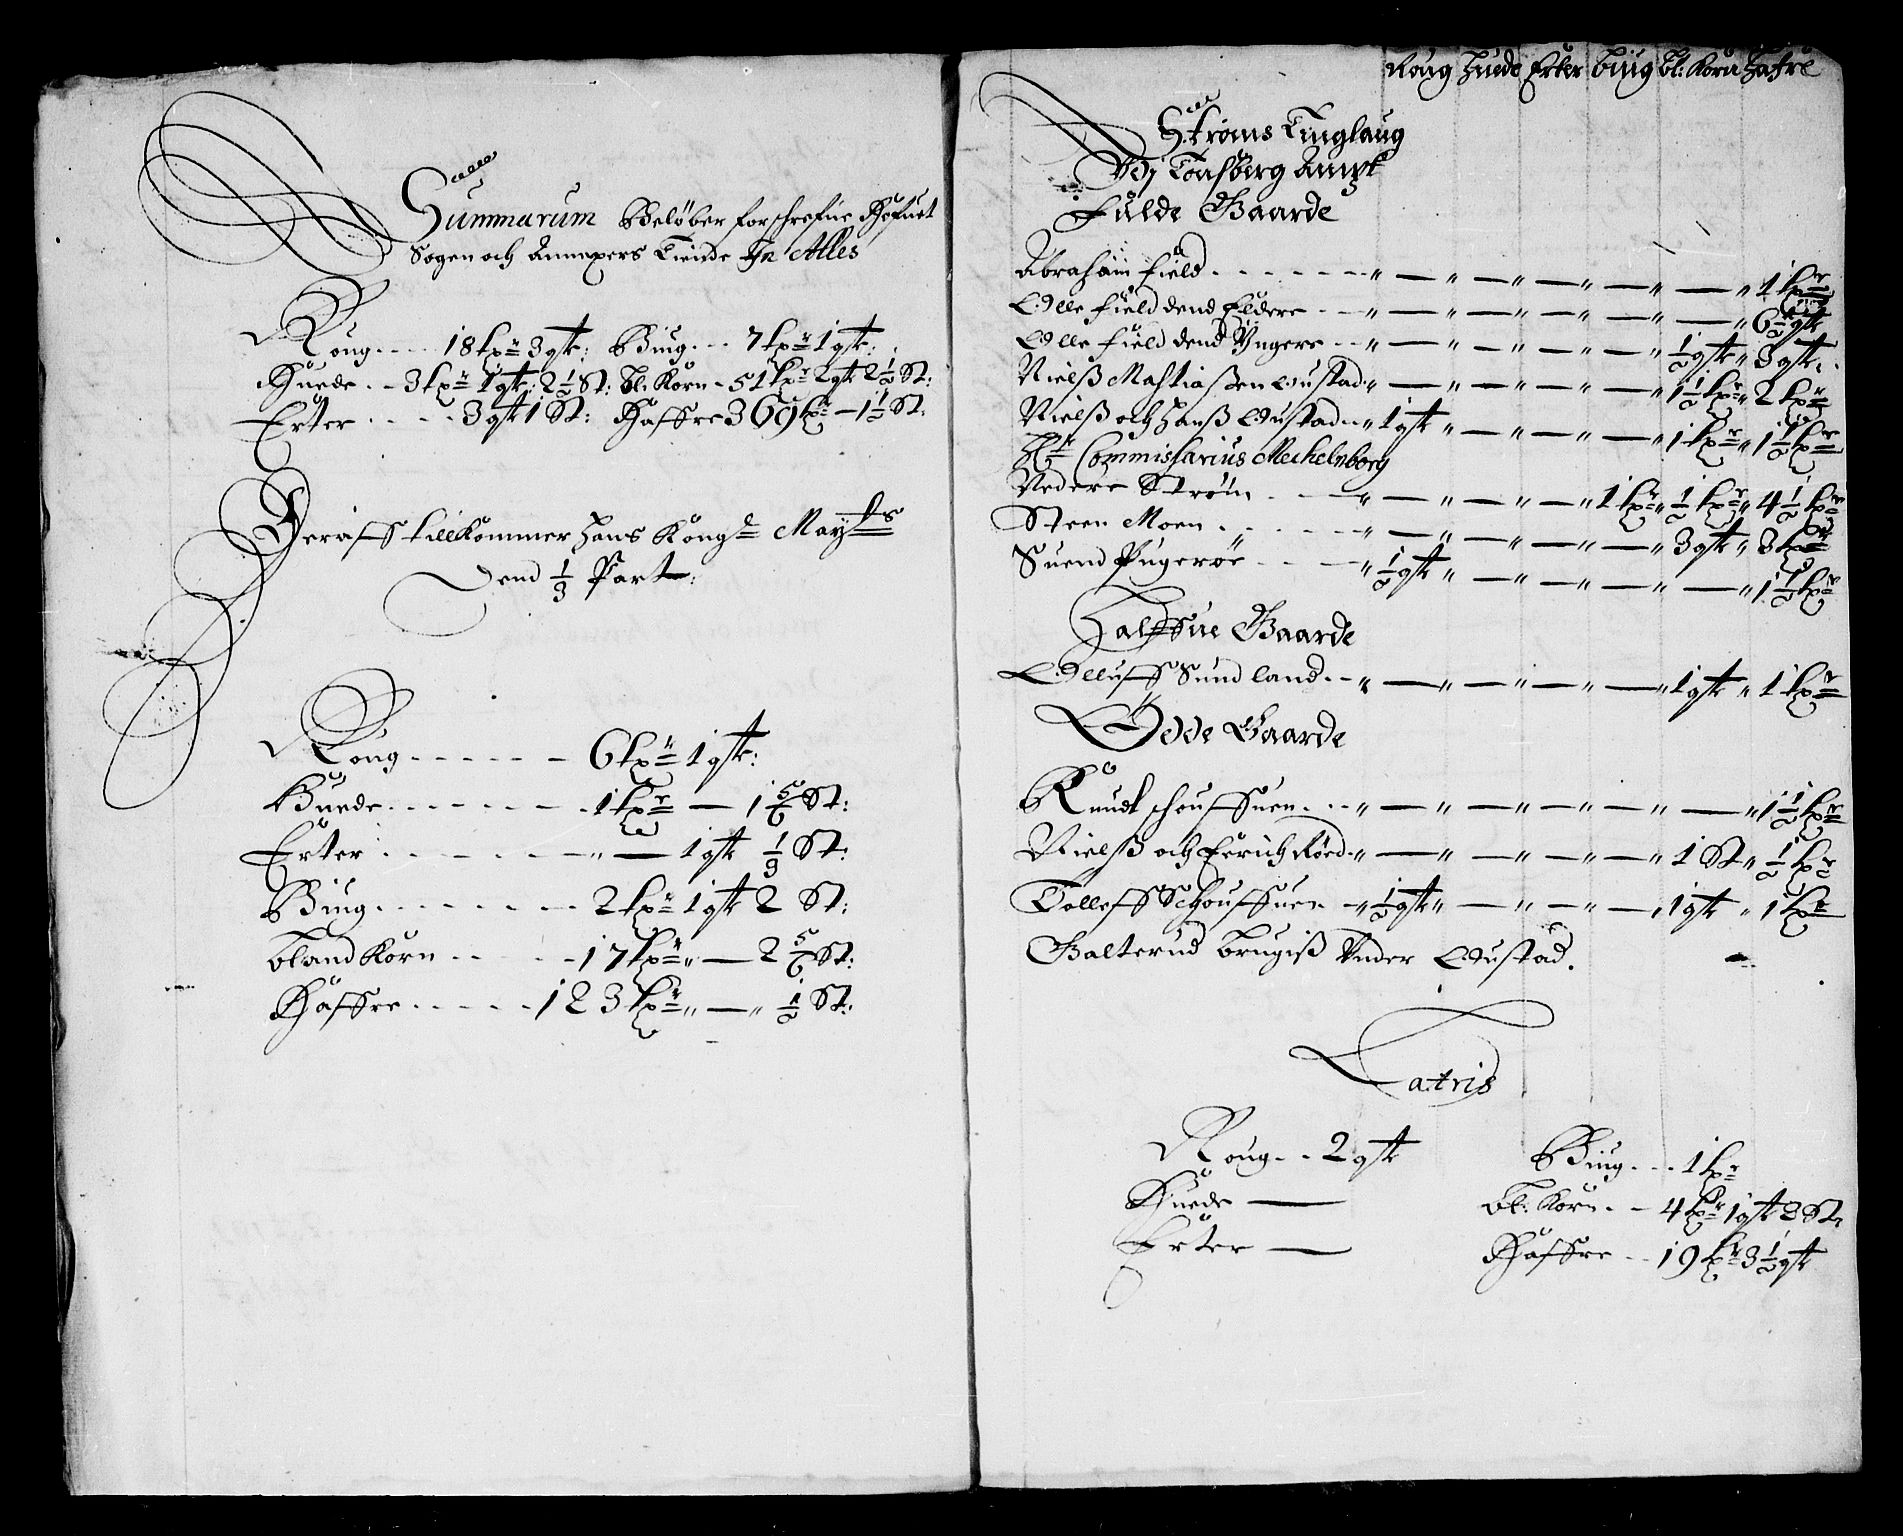 Summarum Beløber forschrefne Hofuet
Sogen och Annexers Tiende In Alles
Roug 18 tr 3 qtr: Biug 7 tr 1 qtr:
Huede 3 tr 1 qtr: 2 1/2 St: bl: Korn 51 tr 2 qtr 2 1/2 St:
Erter 3 qtr 1 St: Haffre 369 tr — 1 1/2 St:
Deraff tillkommer Hans Kong: May:ts
Dend 1/3 Part:
Roug 6 tr 1 qtr:
Huede 1 tr — 1 5/6 St:
Erter " — 1 qtr 1/3 St:
Biug 2 tr 1 qtr 2 St:
bland Korn 17 tr " — 2 5/6 St:
Haffre 123 tr " — " 1/2 St:
Roug Huede Erter biug bl: Korn Hafre
Strøms Tinglaug
Vdj Tonsberg Ampt
Fulde Gaarde
Abraham Field " — " — " — " — " — " 1 tr
Olle Field dend Eldere " — " — " — " — " — " 6 1/2 qtr
Olle Field dend Yngere " — " — " — " — " 1/2 qtr " 3 qtr
Nielß Mathiaßen Oustad " — " — " — " — " 1 1/2 tr " 2 tr
Nielß och Hanß Oustad " 1 qtr " — " — " — " 1 tr " 1 1/2 tr
Hr Commissarius Mechelnborg
Nedere Strøm " — " — " — " 1 tr " 1/2 tr " 4 1/2 tr
Steen Moen " — " — " — " — " 3 qtr " 3 tr
Suend Pugerøe " 1/2 qtr " — " — " — " — " 1 1/2 tr
Halffue Gaarde
Olluff Sundland " — " — " — " — " 1 qtr " 1 tr
Ødde Gaarde
Knudt schouffuen " — " — " — " — " — " 1 1/2 tr
Nielß och Erich Røed " — " — " — " — " 1 St " 1/2 tr
Tolleff Schouffuen " 1/2 qtr " — " — " — " 1 qtr " 1 tr
Galterud brugiß Vnder Oustad.
Latris
Roug 2 qtr Biug 1 tr
Huede — bl: Korn 4 tr 1 qtr 3 St:
Erter — Haffre 19 tr 3 1/2 qtr